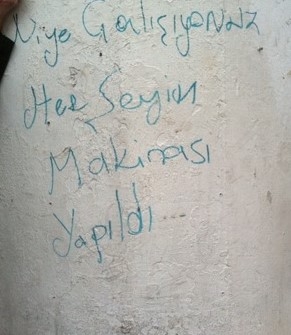 Niye Çalışıyonuz
Her Şeyin
Makinası
Yapıldı